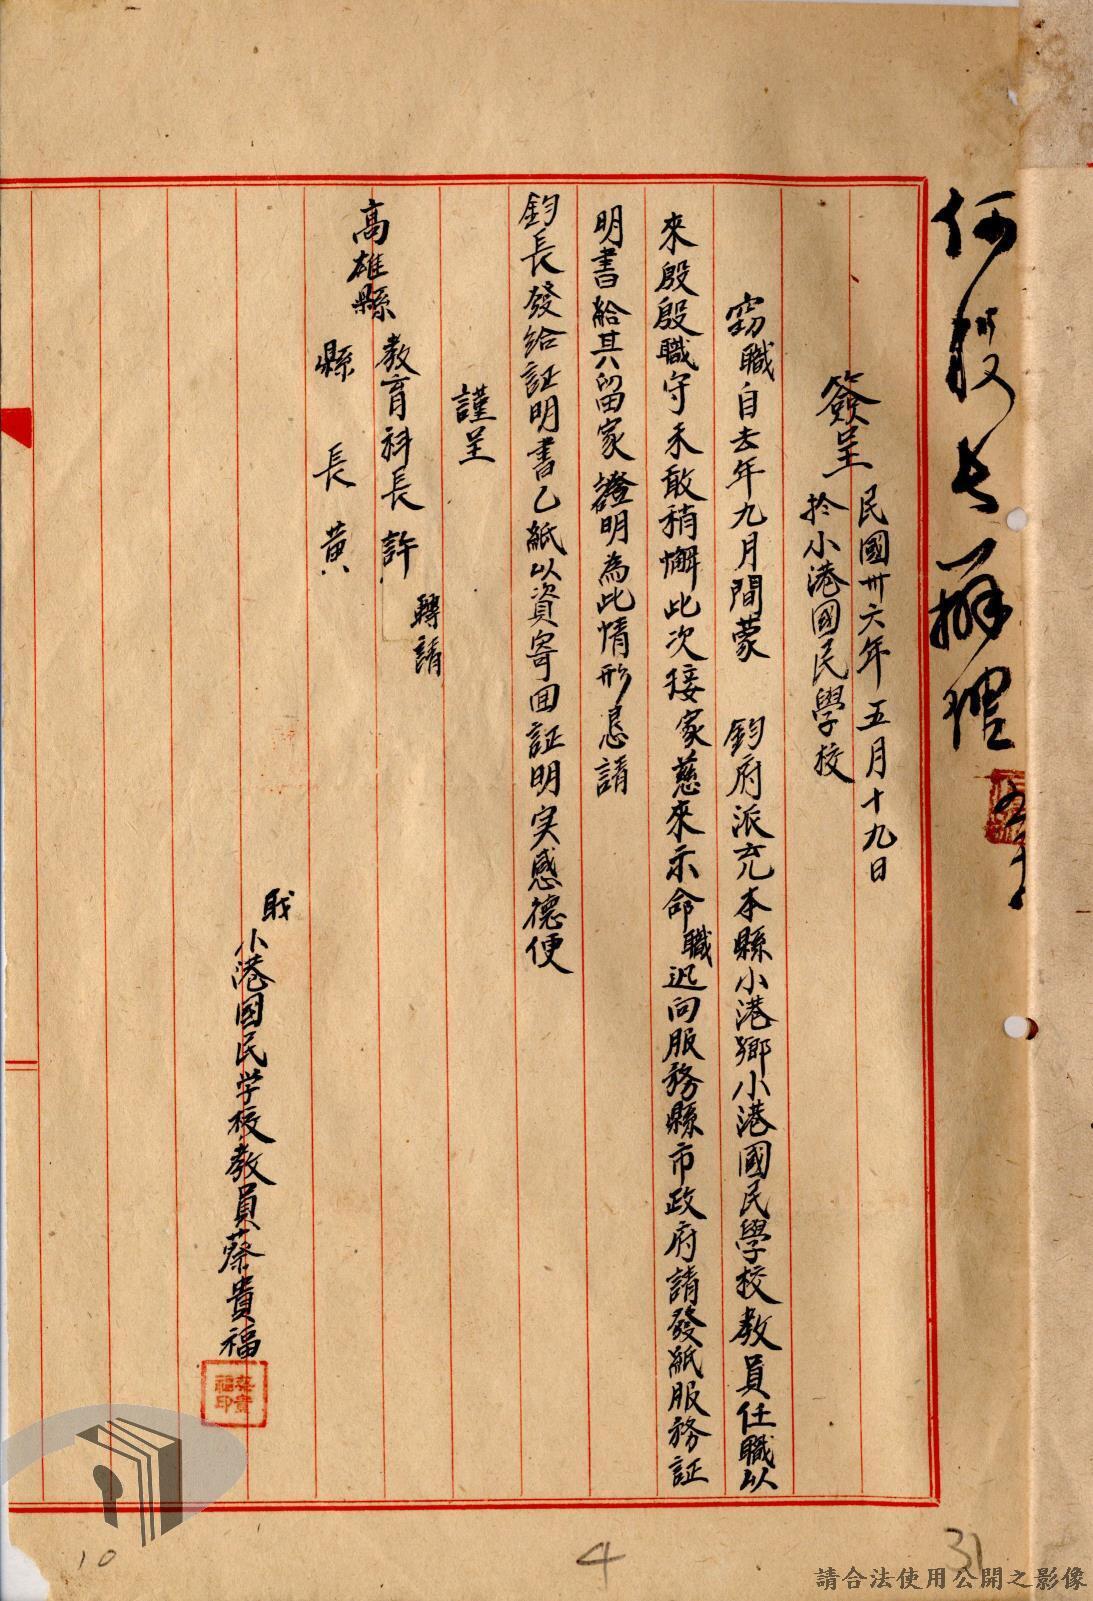 何股長辦理
簽呈 民國卅六年五月十九日
於小港國民學校
竊職自去年九月間蒙 鈞府派充本縣小港鄉小港國民學校教員任職以
來殷殷職守未敢稍懈此次接家慈來示命職迅向服務縣市政府請發紙服務証
明書給其留家證明為此情形恳請
鈞長發給証明書乙紙以資寄回証明实感德便
謹呈
教育科長許 轉請
高雄縣
縣長黃
职小港國民学校教員蔡貴福
蔡貴
福印
10
4
31
請合法使用公開之影像